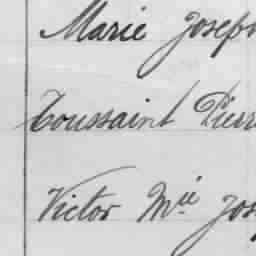 Marie Joseph
Toussaint Pierr
Victor Mie Jos